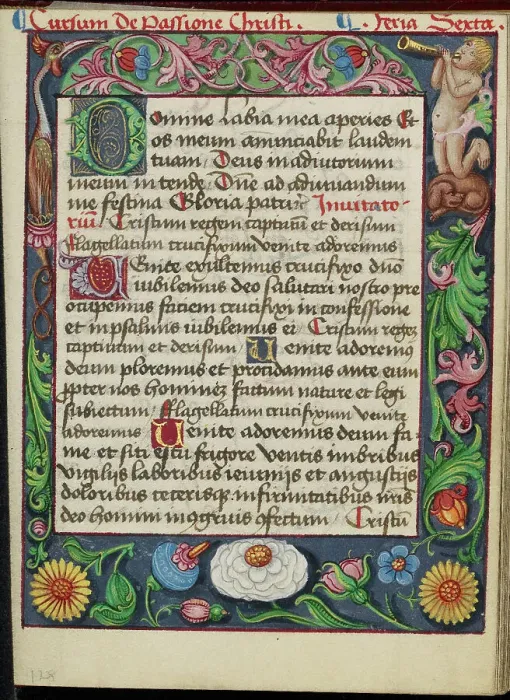 Cursum De Passione Christi. Feria Sexta.
Domine labia mea aperies Et
os meum annunciabit laudem
tuam Deus in adiutorium
meum intende Dñe ad adiuuandum
me festina Gloria patri Inuitato-
riũ Cristum regem captiuũ et derisum
flagellatum crucifixum venite adoremus
Venite exultemus crucifixo duõ
iubilemus deo salutari nostro pre
occupemus faciem crucifixi in confessione
et in psalmis iubilemus ei Cristum regẽ
captiuum et derisum Uenite adoremꝰ
deum ploremus et procidamus ante eum
ꝓpter nos hominez factum nature et legi
subiectum flagellatum crucifixum venite
adoremus Uenite adoremus deum fa-
me et siti estu frigore ventis imbribus
vigilijs laboribus ieiunijs et angustijs
doloribus ceterisqꝫ infirmitatibus nr̃is
deo hominem Cristũ
128